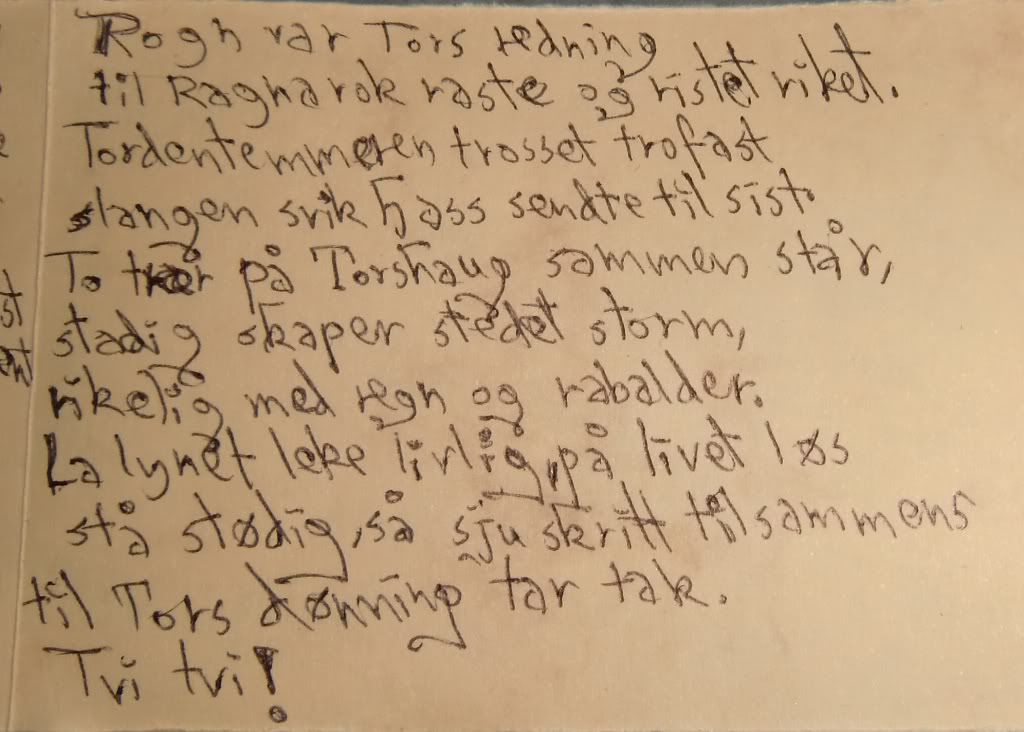 Rogn var Tors redning
til Ragnarok raste og ristet riket.
Tordentemmeren trosset trofast
slangen svik hass sendte til sist.
To trær på Torshaug sammen står,
stadig skaper stedet storm,
rikelig med regn og rabalder.
La lynet leke livlig, på livet løs
stå stødig, så sju skritt tilsammens
til Tors dønning tar tak.
Tvi tvi!